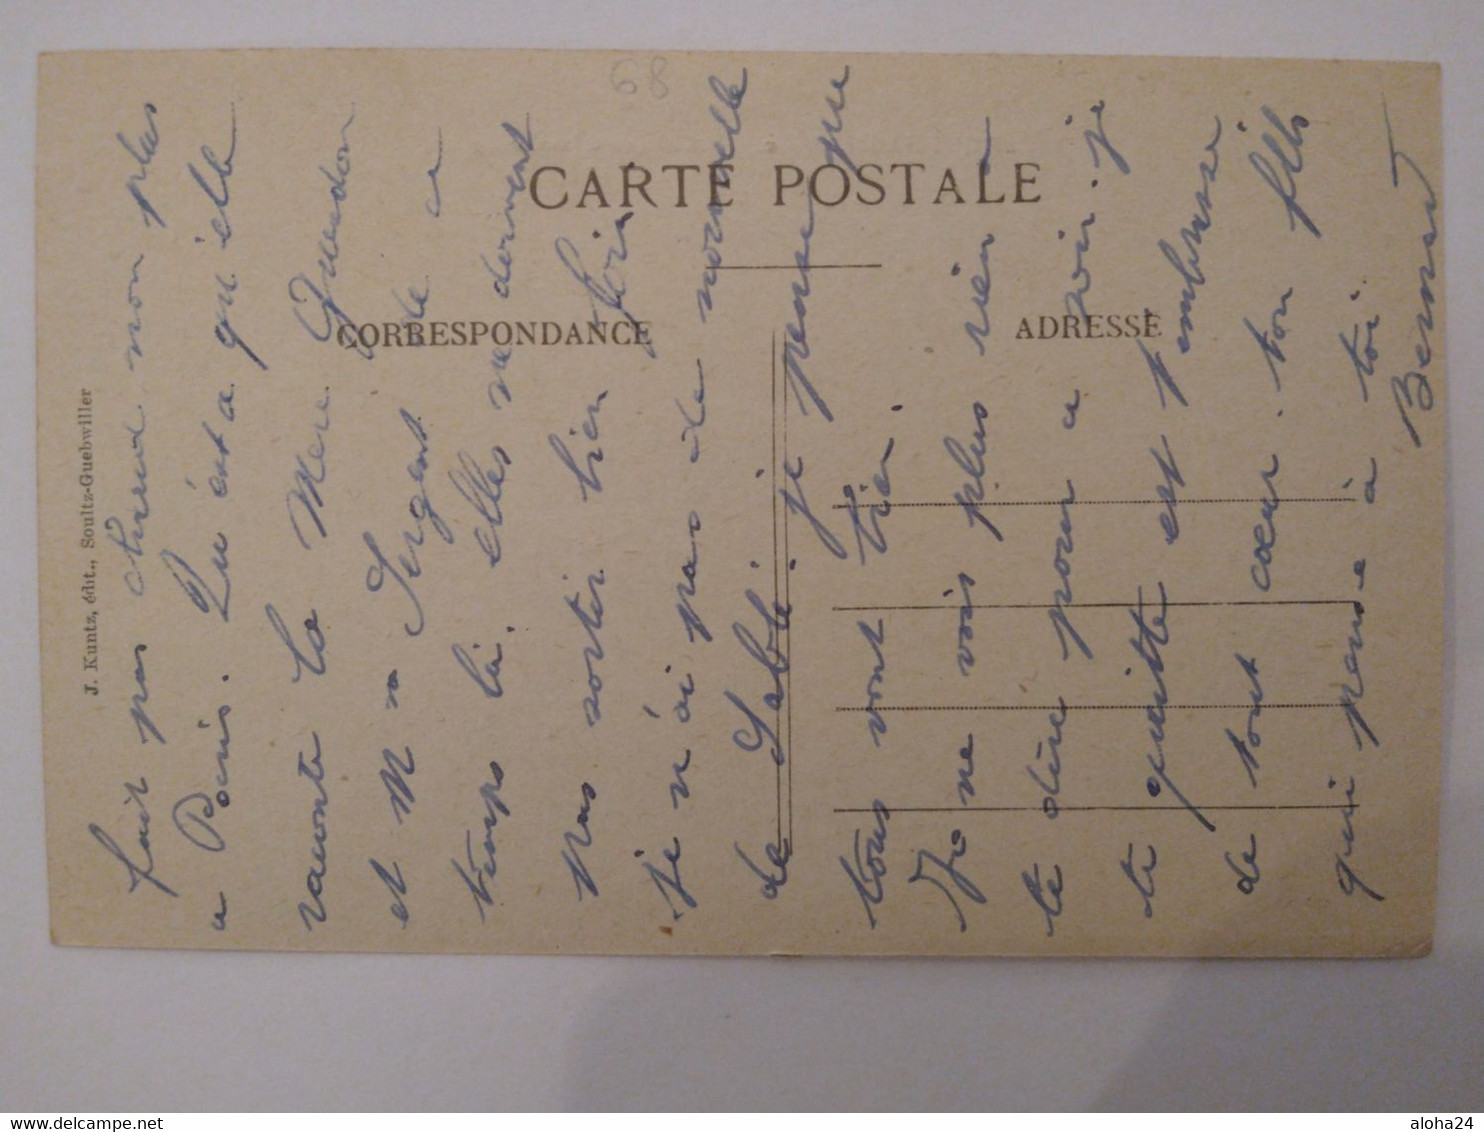 68
CARTE POSTALE
CORRESPONDANCE
ADRESSE
J. Kuntz, édit., Soultz-Guebwiller
fait pas chaud non plus
a Paris. Qu'est a qu'elle
raconte la Mere Guedon
et M Sergent de ce
temps là. elles ne doivent
pas sortir bien loin
je n'ai pas de nouvelle
de Sablé. je pense que
tous vont bien.
Je ne vois plus rien a
te dire pour a soir. je
te quitte est t'embrasse
de tout cœur. ton fils
qui pense à toi.
Bernard
Delcampe.net
aloha24